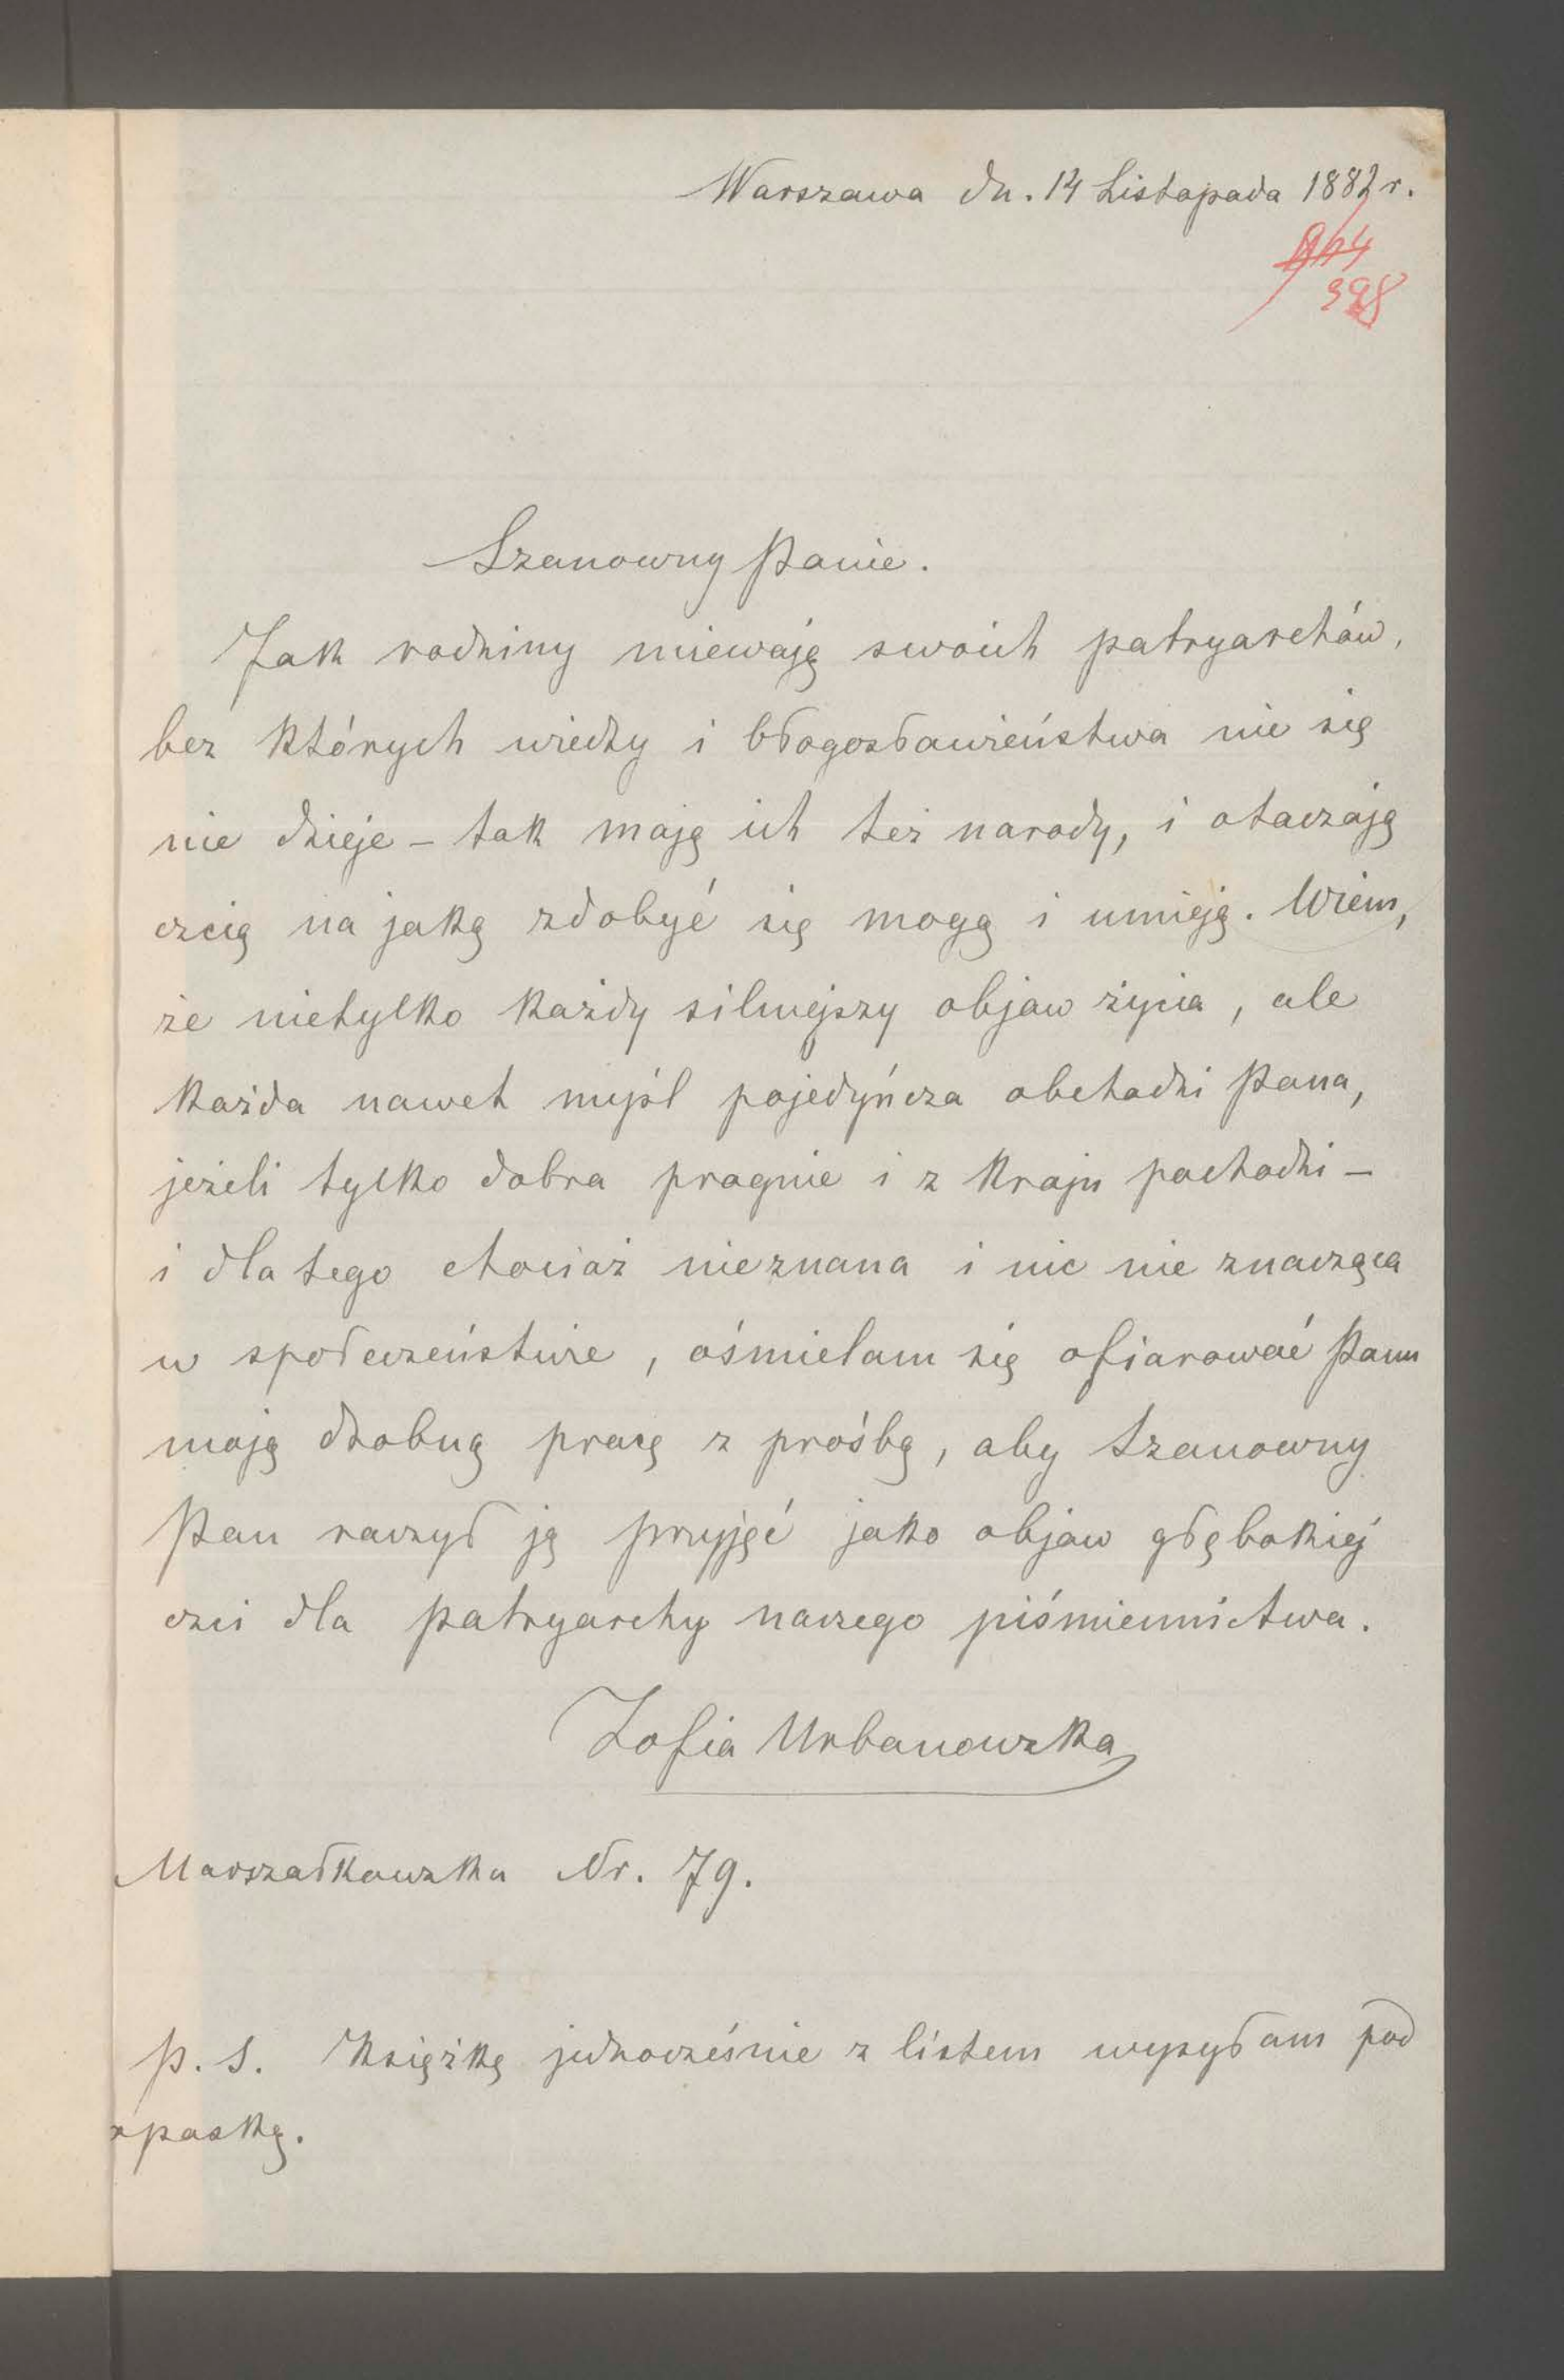 Warszawa dn. 14 Listopada 1882 r.
398
Szanowny Panie.
Jak rodziny miewają swoich patryarchów,
bez których wiedzy i błogosławieństwa nic się
nie dzieje – tak mają ich też narody, i otaczają
czcią na jaką zdobyć się mogą i umieją. Wiem,
że nietylko każdy silniejszy objaw życia, ale
każda nawet myśl pojedyńcza obchodzi Pana,
jeżeli tylko dobra pragnie i z kraju pochodzi –
i dla tego chociaż nieznana i nic nie znacząca
w społeczeństwie, ośmielam się ofiarować Panu
moją drobną pracę z prośbą, aby Szanowny
Pan raczył ją przyjąć jako objaw głębokiéj
czci dla patryarchy naszego piśmiennictwa.
Zofia Urbanowska
Marszałkowska Nr. 79.
P. S. Książkę jednocześnie z listem wysyłam pod
opaską.